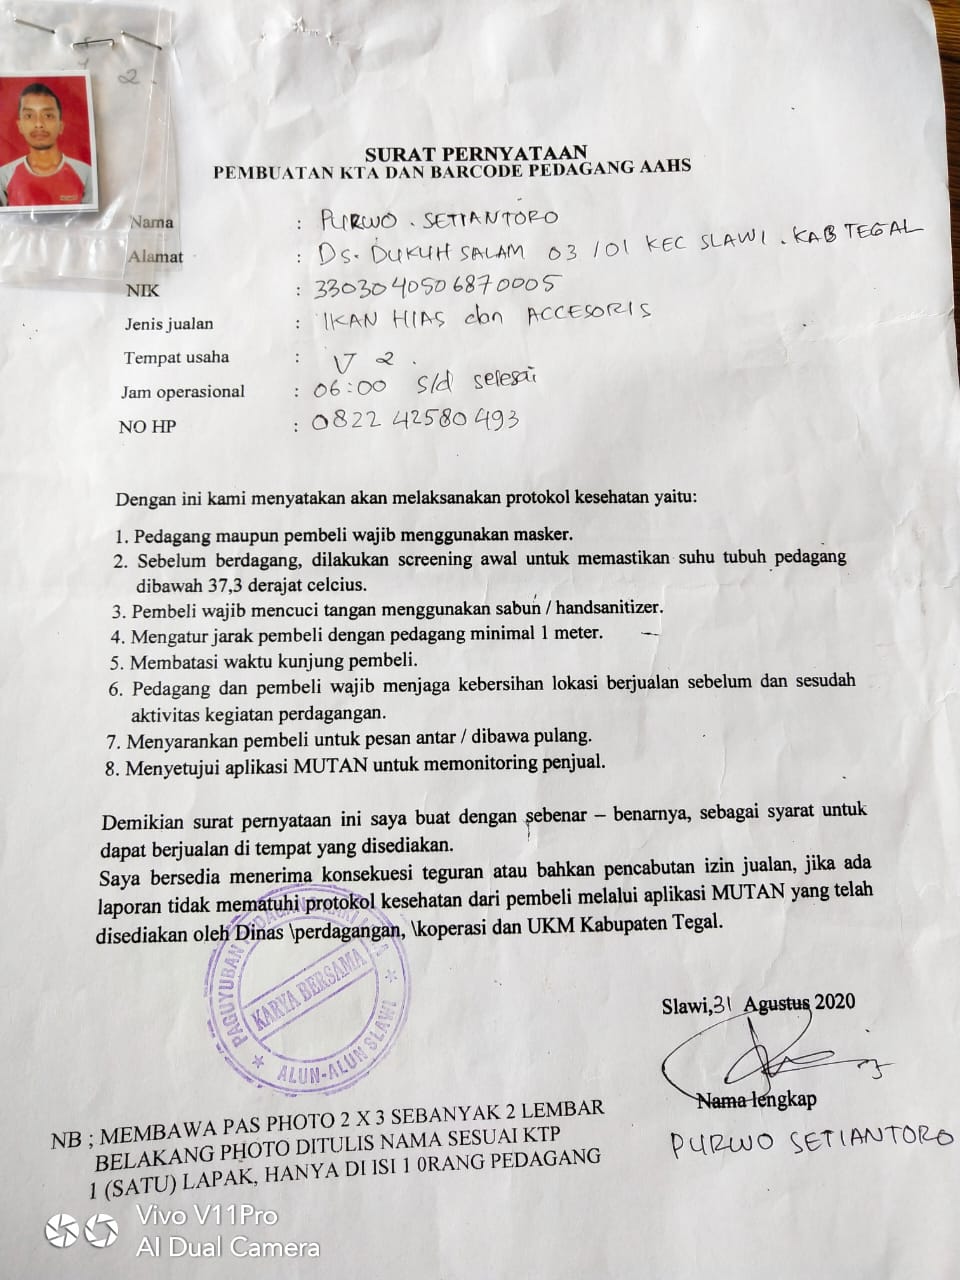 2
SURAT PERNYATAAN
PEMBUATAN KTA DAN BARCODE PEDAGANG AAHS
Nama : PURWO . SETIANTORO
Alamat : Ds. DUKUH SALAM 03 / 01 KEC SLAWI . KAB TEGAL
NIK : 3303040506870005
Jenis jualan : IKAN HIAS dan ACCESORIS
Tempat usaha : V 2 .
Jam operasional : 06:00 s/d selesai
NO HP : 0822 42580 493
Dengan ini kami menyatakan akan melaksanakan protokol kesehatan yaitu:
1. Pedagang maupun pembeli wajib menggunakan masker.
2. Sebelum berdagang, dilakukan screening awal untuk memastikan suhu tubuh pedagang
dibawah 37,3 derajat celcius.
3. Pembeli wajib mencuci tangan menggunakan sabun / handsanitizer.
4. Mengatur jarak pembeli dengan pedagang minimal 1 meter.
5. Membatasi waktu kunjung pembeli.
6. Pedagang dan pembeli wajib menjaga kebersihan lokasi berjualan sebelum dan sesudah
aktivitas kegiatan perdagangan.
7. Menyarankan pembeli untuk pesan antar / dibawa pulang.
8. Menyetujui aplikasi MUTAN untuk memonitoring penjual.
Demikian surat pernyataan ini saya buat dengan sebenar – benarnya, sebagai syarat untuk
dapat berjualan di tempat yang disediakan.
Saya bersedia menerima konsekuesi teguran atau bahkan pencabutan izin jualan, jika ada
laporan tidak mematuhi protokol kesehatan dari pembeli melalui aplikasi MUTAN yang telah
disediakan oleh Dinas \perdagangan, \koperasi dan UKM Kabupaten Tegal.
PAGUYUBAN PEDAGANG
KARYA BERSAMA
ALUN-ALUN SLAWI
Slawi,31 Agustus 2020
Nama lengkap
PURWO SETIANTORO
NB ; MEMBAWA PAS PHOTO 2 X 3 SEBANYAK 2 LEMBAR
BELAKANG PHOTO DITULIS NAMA SESUAI KTP
1 (SATU) LAPAK, HANYA DI ISI 1 0RANG PEDAGANG
Vivo V11Pro
AI Dual Camera